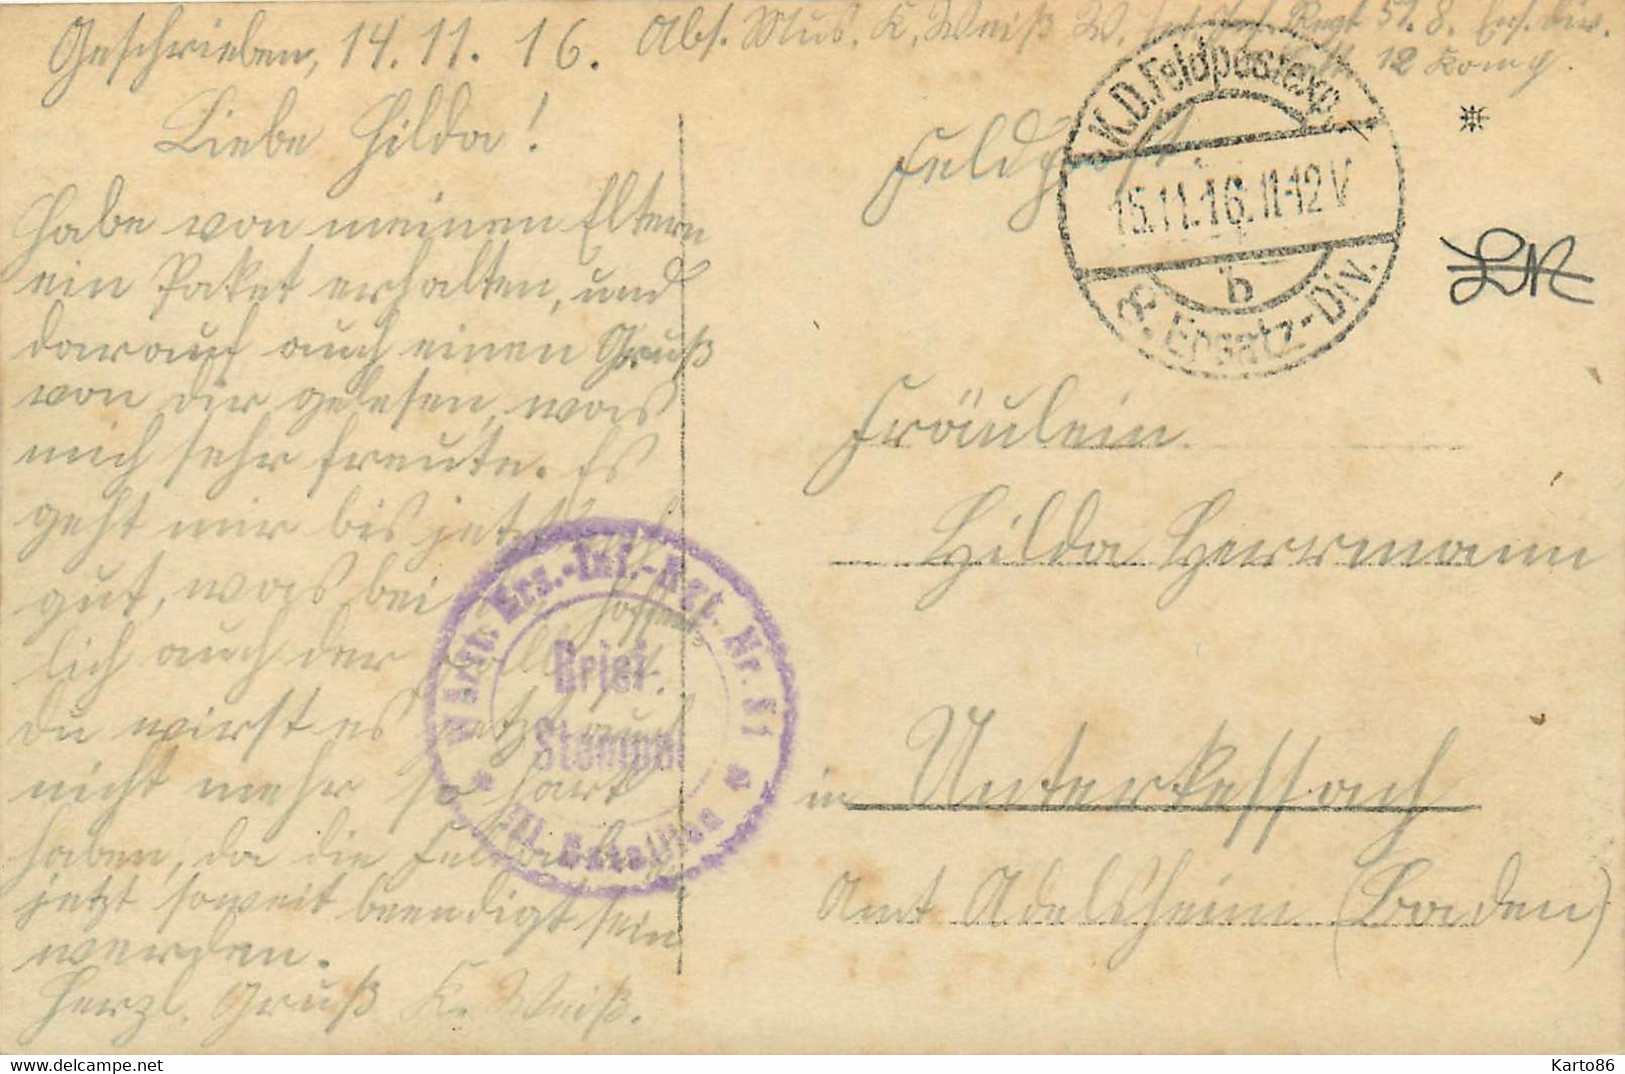 Geschrieben, 14.11.16.
Abs. Mus. K. Weiß W. Inf. Regt 51. 8. Ers. Div.
12 Komp.
Liebe Hilda!
Habe von meinen Eltern
ein Paket erhalten, und
darauf auch einen Gruß
von dir gelesen, was
mich sehr freute. Es
geht mir bis jetzt
gut, was bei hoffent-
lich auch der Fall ist.
Du wirst es jetzt auch
nicht mehr so hart
haben, da die Feldarb.
jetzt soweit beendigt sein
werden.
Herzl. Gruß K. Weiß.
Feldpost.
K.D. Feldpostexp.
15.11.16. 11-12 V
b
8. Ersatz-Div.
Fräulein
Hilda Herrmann
in Unterkessach
Amt Adelsheim (Baden)
Württ. Ers.-Inf.-Rgt. Nr. 51
Brief-
Stempel
III. Bataillon
delcampe.net
Karto86